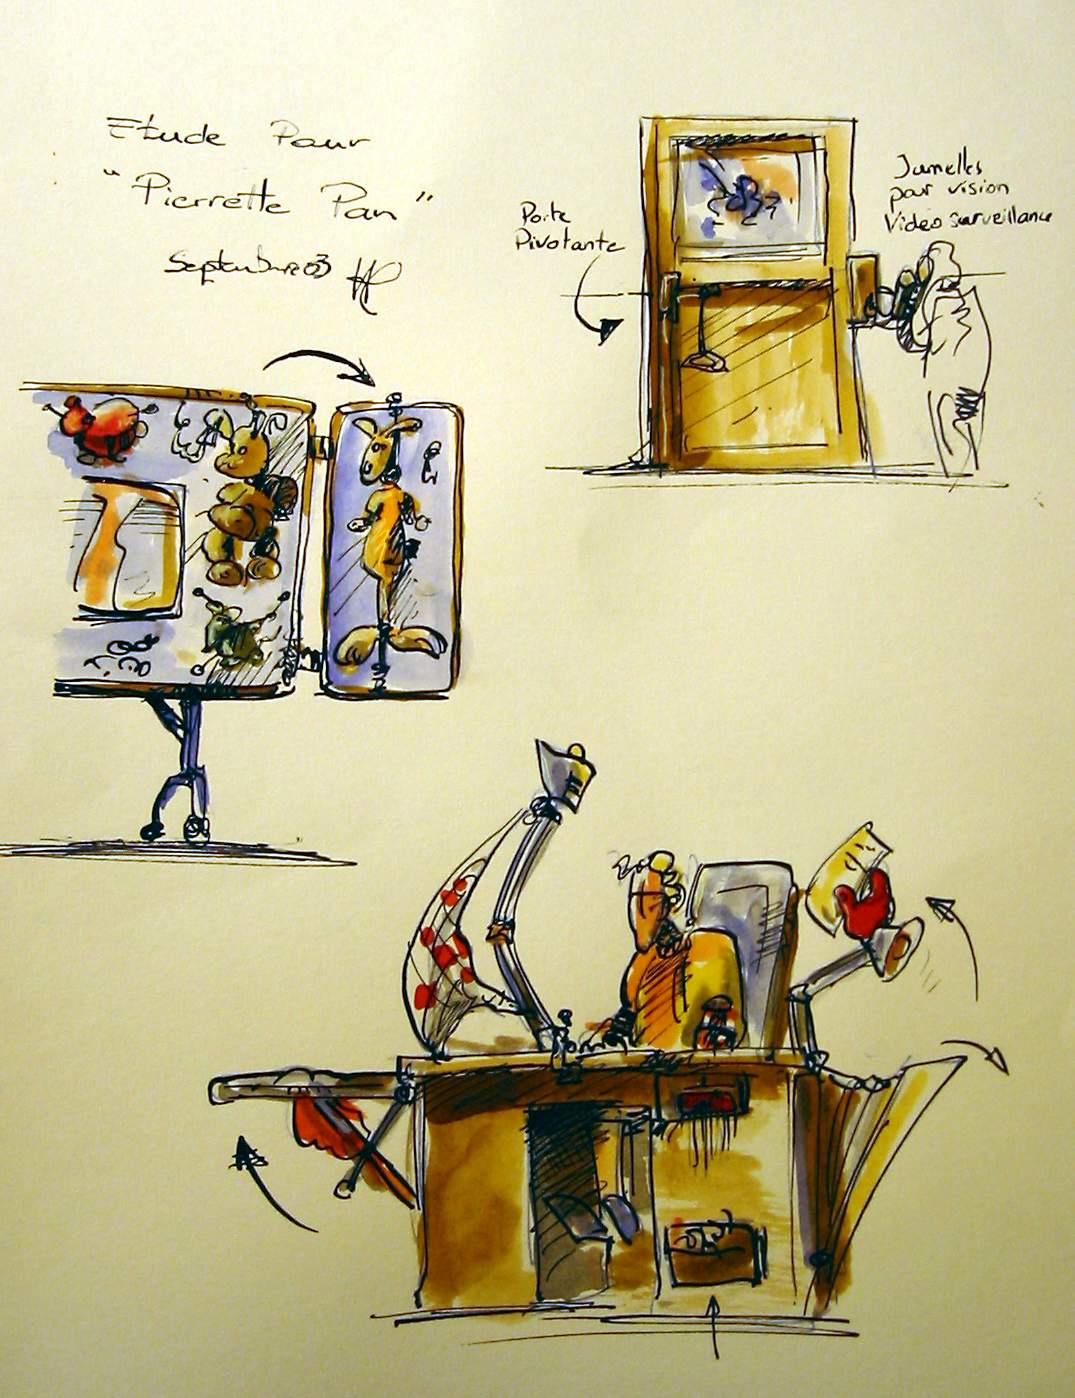 Etude Pour
"Pierrette Pan"
Septembre 03
Porte
Pivotante
Jumelles
pour vision
Vidéo surveillance